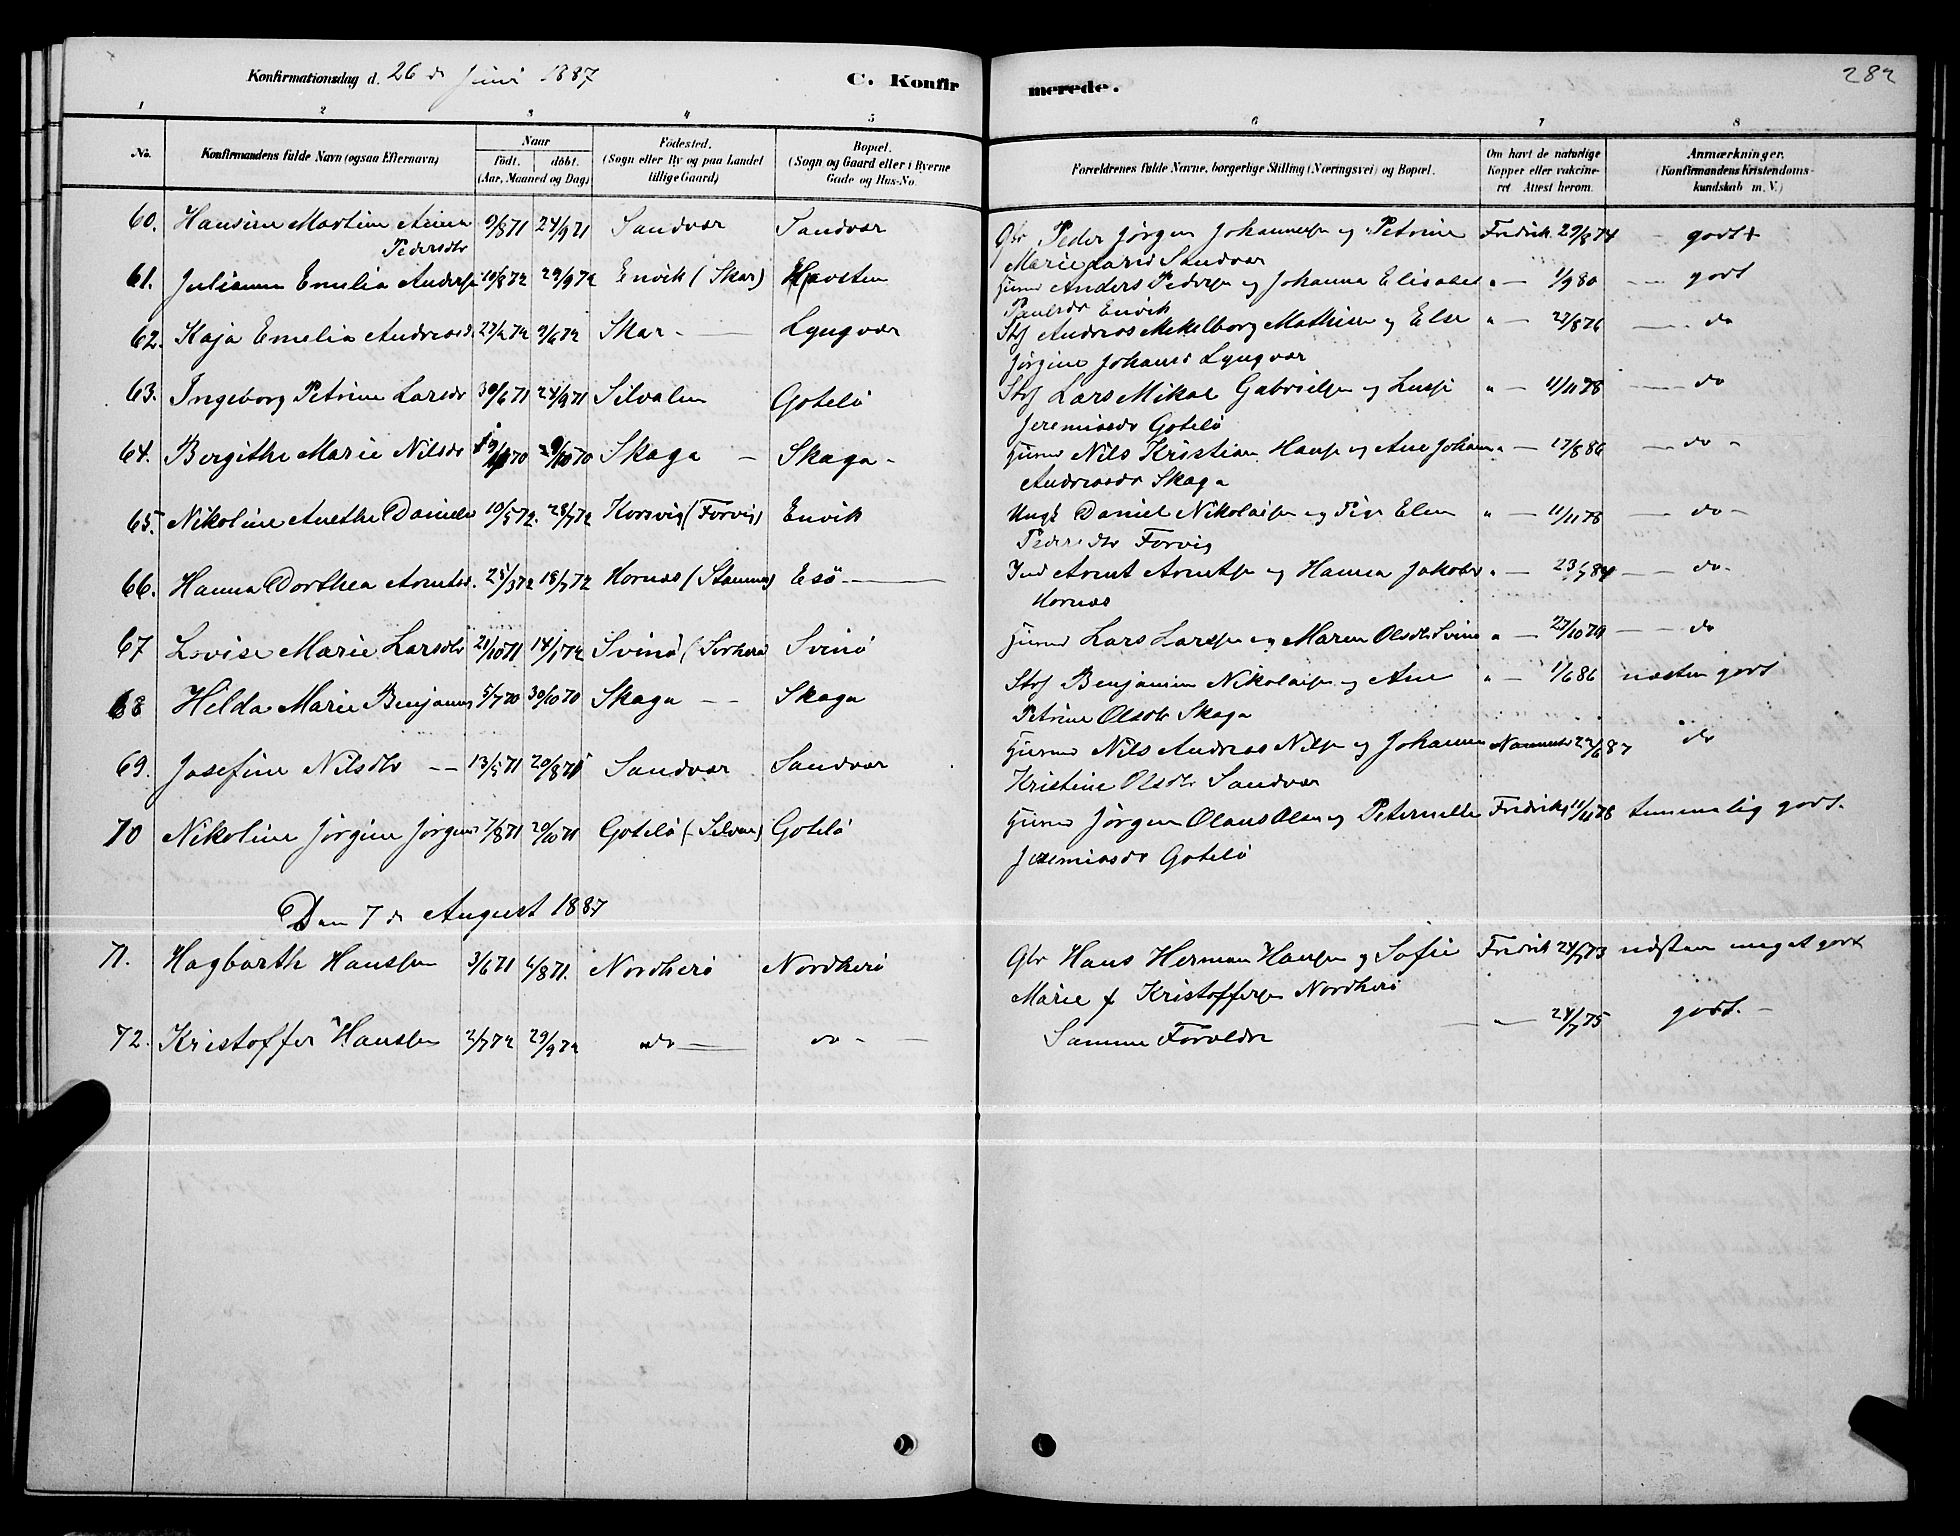 Konfirmationsdag d. 26 de Juni 1887
C. Konfir merede.
282
1 2 3 4 5 6 7 8
No.
Konfirmandens fulde Navn (ogsaa Efternavn)
Naar
født. døbt.
(Aar, Maaned og Dag)
Födested.
(Sogn eller By og paa Landet
tillige Gaard)
Bopæl.
(Sogn og Gaard eller i Byerne
Gade og Hus-No.
Forældrenes fulde Navne, borgerlige Stilling (Næringsvei) og Bopæl.
Om havt de naturlige
Kopper eller vakcine-
ret Attest herom.
Anmærkninger.
(Konfirmandens Kristendoms-
kundskab m. V.)
60. Hansine Martine 9/8 71 24/9 71 Sandvær Sandvær Gbr Peder Jørgen Johannessen og Petrine Fredrik. 29/8 74 godt
Pedersdtr Marie Sandvær
61. Julianna Emilia Anders 10/8 72 29/9 72 Envik (Skar) Havsten Anders Pedersen og Johanna Elisabet " — 1/9 80 — godt
Paulsdr Envik
62. Kaja Emelia Andreasd 27/2 72 9/6 72 Skar — Lyngvær Andreas Mekelborg Mathisen og Else " — 27/8 76 — do
Jørgine Johansd Lyngvær
63. Ingeborg Petrine Larsdr 30/6 71 24/9 71 Silvalen Gotelö Lars Mikal Gabrielsen og Lussi " — 11/11 78 — do
Jeremiasdr Gotelö
64. Bergithe Marie Nilsdr 9/10 70 Skaga — Skaga - Nils Kristian Hansen og Ane Johanna " — 17/8 86 — do -
Andreasdr Skaga
65. Nikoline Anethe Daniels 10/5 72. 28/7 72 (Forvig) Envik Ungk Daniel Nikolaisen og Pige Elen " — 11/11 78 — do -
Pedersdtr Forvig
66. Hanna Dorthea Arntsd. 25/3 72 18/7 72 Hornæs (Stamnes) Esö — Ind Arnt Arntsen og Hanna Jakobsd " — 84 — do -
Hornæs
67 Lovise Marie Larsdtr 21/10 71 14/1 72 Svinö Svinö Lars Larsen og Maren Olsdtr Svinö " — — do
68 Helda Marie Benjamins 5/7 70 30/10 70 Skaga — Skaga Benjamin Nikolaisen og Ane " — 1/6 86 næsten godt
Petrine Olsdtr Skaga
69. Josefine Nilsdtr — 13/5 71 20/8 71 Sandvær Sandvær Nils Andreas Nilsen og Johanna 22/6 87 do
Kristine Olsdtr Sandvær
70 Nikoline Jørgine Jørgens 7/8 71 20/10 71 Gotelö Gotelö Jørgen Olaus Olsen og Peternelle Fredrik 11/11 78 temmelig godt.
Jeremiasdr Gotelö
Den 7 de August 1887
71. Hagbarth Hanssen 3/6 71 6/8 71. Nordherö Nordherö Gbr Hans Herman Hansen og Sofie Fredrik 24/7 73 næsten meget godt
Marie f Kristoffersen Nordherö
72. Kristoffer Hanssen 2/7 72 29/9 72 do — do - Samme Forældre — " — 24/7 75 godt. -